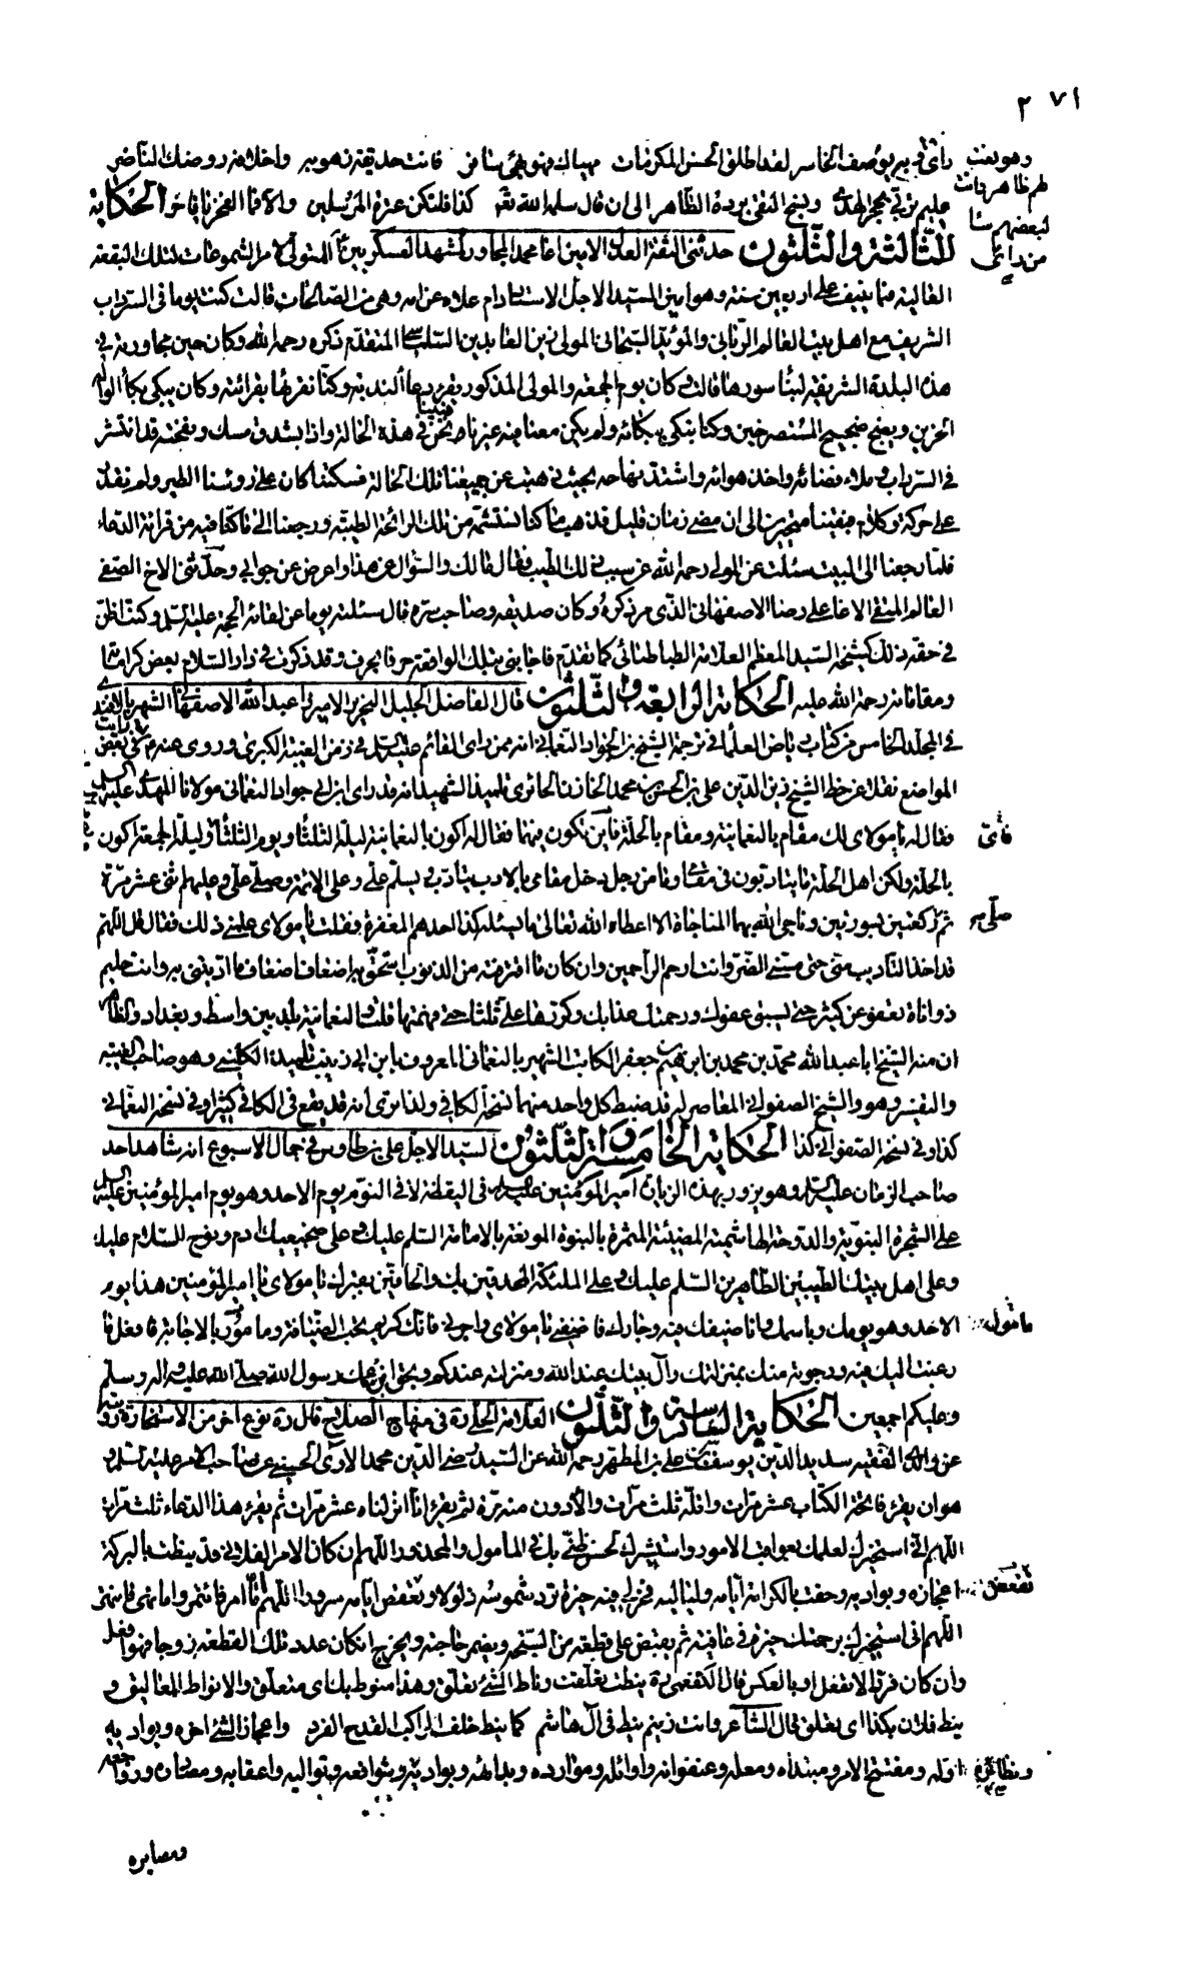 ٢٧١
لقد اطلق الحسن المكرمات
واخلاقه روضك الناضر
عليهم الى ان قال سلمه الله تعالى كذا فلتكن عترة المرسلين والا فما الفخر يا فاخر الحكاية
الثالثة والثلثون حدثني الثقة العدل الامين اغا محمد المجاور لمشهد العسكريين المتولي لامر الشموعات لتلك البقعة
العالية فيما ينيف على اربعين سنة وهو امين السيد الاجل الاستاد دام علاه عن امه وهي من الصالحات قالت كنت يوما في السرداب
الشريف مع اهل بيت العالم الرباني والمؤيد السبحاني المولى زين العابدين السلماسي المتقدم ذكره رحمه الله وكان حين مجاورته في
هذه البلدة الشريفة لبناء سورها قالت وكان يوم الجمعة والمولى المذكور يقرء دعاء الندبة وكنا نقرئها بقرائته وكان يبكي بكاء الواله
الحزين ويضج ضجيج المستصرخين وكنا نبكي ببكائه ولم يكن معنا فيه غيرنا فبينا نحن في هذه الحالة واذا بشرق مسك ونفحته قد انتشر
في السرداب وملاء فضائه واخذ هوائه واشتد نفاحه بحيث ذهبت عن جميعنا تلك الحالة فسكتنا كان على رؤسنا الطير ولم نقدر
على حركة وكلام فبقينا متحيرين الى ان مضى زمان قليل فذهب ما كنا نستشمه من تلك الرائحة الطيبة ورجعنا الى ما كنا فيه من قرائة الدعاء
فلما رجعنا الى البيت سئلت عن المولى رحمه الله عن سبب ذلك الطيب فقال مالك والسؤال عن هذا واعرض عن جوابي وحدثني الاخ الصفي
العالم المتقي الاغا علي رضا الاصفهاني الذي مر ذكره وكان صديقه وصاحب سره قال سئلته يوما عن لقائه الحجة عليه السلام وكنت اظن
في حقه ذلك كشيخه السيد المعظم العلامة الطباطبائي كما تقدم فاجابني بتلك الواقعة حرفا بحرف وقد ذكرت في دار السلام بعض كراماته
ومقاماته رحمة الله عليه الحكاية الرابعة والثلثون قال الفاضل الجليل النحرير الاميرزا عبد الله الاصفهاني الشهير بالافندي
في المجلد الخامس من كتاب رياض العلماء في ترجمة الشيخ بن ابي الجواد النعماني انه ممن راى القائم عليه السلام في زمن الغيبة الكبرى وروى عنه ورايت في بعض
المواضع نقلا عن خط الشيخ زين الدين علي بن الحسن بن محمد الخازن الحائري تلميذ الشهيد انه قد راى ابن ابي جواد النعماني مولانا المهدي عليه السلام
فقال له يا مولاي لك مقام بالنعمانية ومقام بالحلة فاين تكون فيهما فقال له اكون بالنعمانية ليلة الثلثا ويوم الثلثا وليلة الجمعة اكون
بالحلة ولكن اهل الحلة ما يتادبون في مقامي وما من رجل دخل مقامي بالادب يتادب ويسلم علي وعلى الائمة وصلى علي وعليهم اثني عشر مرة
ثم صلى ركعتين بسورتين وناجى الله بهما المناجاة الا اعطاه الله تعالى ما يسئله احدها المغفرة فقلت يا مولاي علمني ذلك فقال قل اللهم
قد اخذ التاديب مني حتى مسني الضر وانت ارحم الراحمين وان كان ما اقترفته من الذنوب استحق به اضعاف اضعاف ما ادبتني به وانت حليم
ذو اناة تعفو عن كثير حتى يسبق عفوك ورحمتك عذابك وكررها علي ثلثا حتى فهمتها قلت والنعمانية بلد بين واسط وبغداد والظاهر
ان منه الشيخ ابا عبد الله محمد بن محمد بن ابراهيم بن جعفر الكاتب الشهير بالنعماني المعروف بابن ابي زينب تلميذ الكليني وهو صاحب الغيبة
والتفسير وهو والشيخ الصفواني المعاصر له قد ضبط كل واحد منهما نسخة الكافي ولذا ترى انه قد يقع في الكافي كثيرا وفي نسخة النعماني
كذا وفي نسخة الصفواني كذا الحكاية الخامسة والثلثون السيد الاجل علي بن طاوس في جمال الاسبوع انه شاهد احد
صاحب الزمان عليه السلام وهو يزور بهذه الزيارة امير المؤمنين عليه السلام في اليقظة لا في النوم يوم الاحد وهو يوم امير المؤمنين عليه السلام
على الشجرة النبوية والدوحة الهاشمية المضيئة المثمرة بالنبوة المونعة بالامامة السلم عليك وعلى ضجيعيك ادم ونوح السلام عليك
وعلى اهل بيتك الطيبين الطاهرين السلم عليك وعلى الملئكة المحدقين بك والحافين بقبرك يا مولاي يا امير المؤمنين هذا يوم
الاحد وهو يومك وباسمك وانا ضيفك فيه وجارك فاضفني يا مولاي واجرني فانك كريم تحب الضيافة ومامور بالاجابة فافعل ما
رغبت اليك فيه ورجوته منك بمنزلتك وآل بيتك عند الله ومنزلته عندكم وبحق ابن عمك رسول الله صلى الله عليه وآله وسلم
وعليكم اجمعين الحكاية السادسة والثلثون العلامة الحلي ره في منهاج الصلاح قال ره نوع اخر من الاستخارة رويته
عن والدي الفقيه سديد الدين يوسف بن علي بن المطهر رحمه الله عن السيد رضي الدين محمد الاوي الحسيني عن صاحب الامر عليه السلم
هو ان يقرء فاتحة الكتاب عشر مرات واقله ثلث مرات والادون منه مرة ثم يقرء انا انزلناه عشر مرات ثم يقرء هذا الدعاء ثلث مرات
اللهم اني استخيرك لعلمك بعواقب الامور واستشيرك لحسن ظني بك في المامول والمحذور اللهم ان كان الامر الفلاني قد نيطت بالبركة
اعجازه وبواديه وحفت بالكرامة ايامه ولياليه فخر لي فيه خيرة ترد شموسه ذلولا وتقعض ايامه سرورا اللهم اما امر فائتمر واما نهي فانتهي
اللهم اني استخيرك برحمتك خيرة في عافية ثم يقبض على قطعة من السبحة ويضمر حاجته ويخرج ان كان عدد تلك القطعة زوجا فهو افعل
وان كان فردا لا تفعل او بالعكس قال الكفعمي ره نيطت تعلقت وناط الشئ تعلق وهذا منوط بك اي متعلق والانواط المعاليق و
نيط فلان بكذا اي تعلق قال الشاعر وانت زنيم نيط في آل هاشم كما نيط خلف الراكب القدح الفرد واعجاز الشئ اخره وبواديه
اوله ومفتتح الامر ومبتداه ومعله وعنفوانه واوائله وموارده وبدائهه وبواديه وشوافعه وتواليه واعقابه
ومصايره